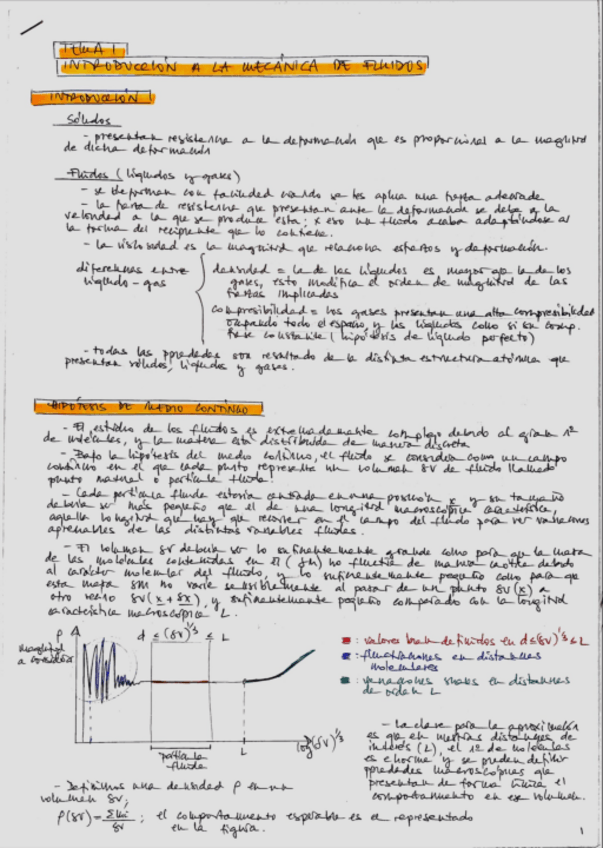 TEMA 1
INTRODUCCIÓN A LA MECÁNICA DE FLUIDOS
INTRODUCCIÓN
Sólidos
- presentan resistencia a la deformación que es proporcional a la magnitud
de dicha deformación
Fluidos (líquidos y gases)
- se deforman con facilidad cuando se les aplica una fuerza adecuada
- la fuerza de resistencia que presentan ante la deformación se debe a la
velocidad a la que se produce esta; x eso un fluido acaba adaptándose a
la forma del recipiente que lo contiene.
- la viscosidad es la magnitud que relaciona esfuerzos y deformación.
diferencias entre
líquido-gas
densidad = la de los líquidos es mayor que la de los
gases, esto modifica el orden de magnitud de las
fuerzas implicadas
compresibilidad = los gases presentan una alta compresibilidad
ocupando todo el espacio, y los líquidos como si su comp.
fuese constante (hipótesis de líquido perfecto)
- todas las ppiedades son resultado de la distinta estructura atómica que
presentan sólidos, líquidos y gases.
HIPÓTESIS DE MEDIO CONTINUO
- El estudio de los fluidos es extremadamente complejo debido al gran nº
de moléculas, y la materia está distribuida de manera discreta
- Bajo la hipótesis del medio continuo, el fluido se considera como un campo
continuo en el que cada punto representa un volumen δV de fluido llamado
punto material o partícula fluida.
- Cada partícula fluida estaría centrada en una posición x y su tamaño
debería ser más pequeño que el de una longitud macroscópica característica,
aquella longitud que hay que recorrer en el campo del fluido para ver variaciones
apreciables de las distintas variables fluidas.
- El volumen δV debería ser lo suficientemente grande como para que la masa
de las moléculas contenidas en él (δm) no fluctúe de manera caótica debido
al carácter molecular del fluido, y lo suficientemente pequeño como para que
esta masa δm no varíe sensiblemente al pasar de un punto δV(x) a
otro vecino δV(x+δx), y suficientemente pequeño comparado con la longitud
característica macroscópica L.
ρ
magnitud
a considerar
d ≤ (δV)^1/3 ≤ L
partícula
fluida
L
log(δV)^1/3
: valores bien definidos en d≤(δV)^1/3≤L
: fluctuaciones en distancias
moleculares
: variaciones suaves en distancias
de orden L
- La clave para la aproximación
es que en nuestras distancias de
interés (L), el nº de moléculas
es enorme y se pueden definir
ppiedades macroscópicas que
presentan de forma única el
comportamiento en ese volumen.
- Definimos una densidad ρ en un
volumen δV;
ρ(δV) = Σmi/δV ; el comportamiento esperable es el representado
en la figura.
1